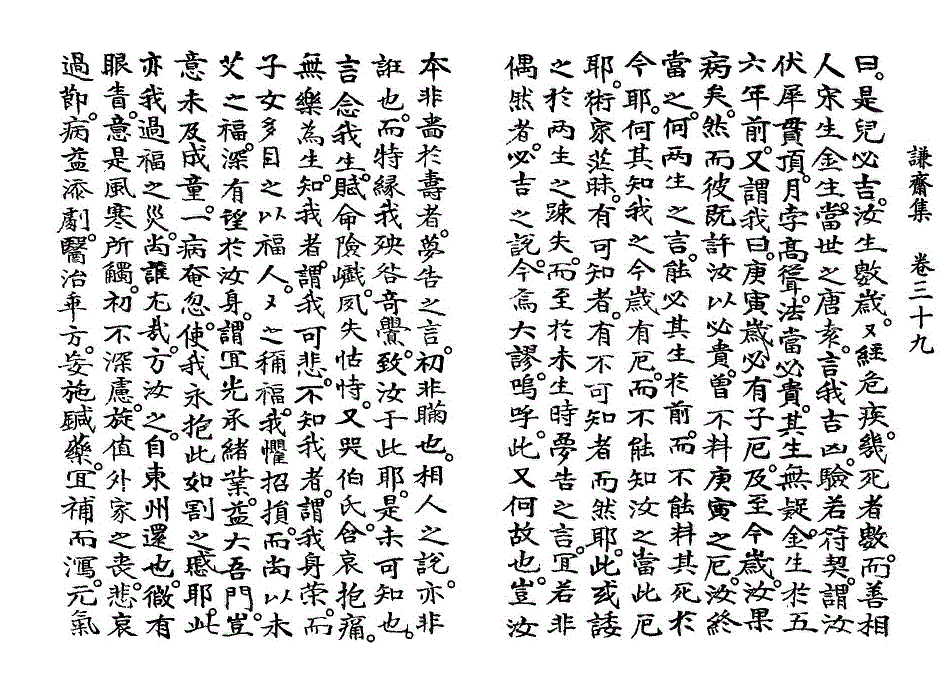 謙齋集　卷三十九
曰。是兒必吉。汝生數歲。又經危疾。幾死者數。而善相
人宋生金生。當世之唐袁。言我吉凶。驗若符契。謂汝
伏犀貫頂。月孛高聳。法當必貴。其生無疑。金生於五
六年前。又謂我曰。庚寅歲必有子厄。及至今歲。汝果
病矣。然而彼旣許汝以必貴。曾不料庚寅之厄。汝終
當之。何兩生之言。能必其生於前。而不能料其死於
今耶。何其知我之今歲有厄。而不能知汝之當此厄
耶。術家茫昧。有可知者。有不可知者而然耶。此或諉
之於兩生之踈失。而至於未生時夢告之言。宜若非
偶然者。必吉之說。今焉大謬。嗚呼。此又何故也。豈汝
本非嗇於壽者。夢告之言。初非瞞也。相人之說。亦非
誑也。而特緣我殃咎奇釁。致汝于此耶。是未可知也。
言念我生。賦命險巇。夙失怙恃。又哭伯氏。含哀抱痛。
無樂為生。知我者。謂我可悲。不知我者。謂我身榮。而
子女多目之以福人。人之稱福。我懼招損。而尚以未
艾之福。深有望於汝身。謂宜光承緖業。益大吾門。豈
意未及成童。一病奄忽。使我永抱此如割之慼耶。此
亦我過福之災。尚誰尤哉。方汝之自東州還也。微有
眼眚。意是風寒所觸。初不深慮。旋值外家之喪。悲哀
過節。病益添劇。醫治乖方。妄施鍼藥。宜補而瀉。元氣